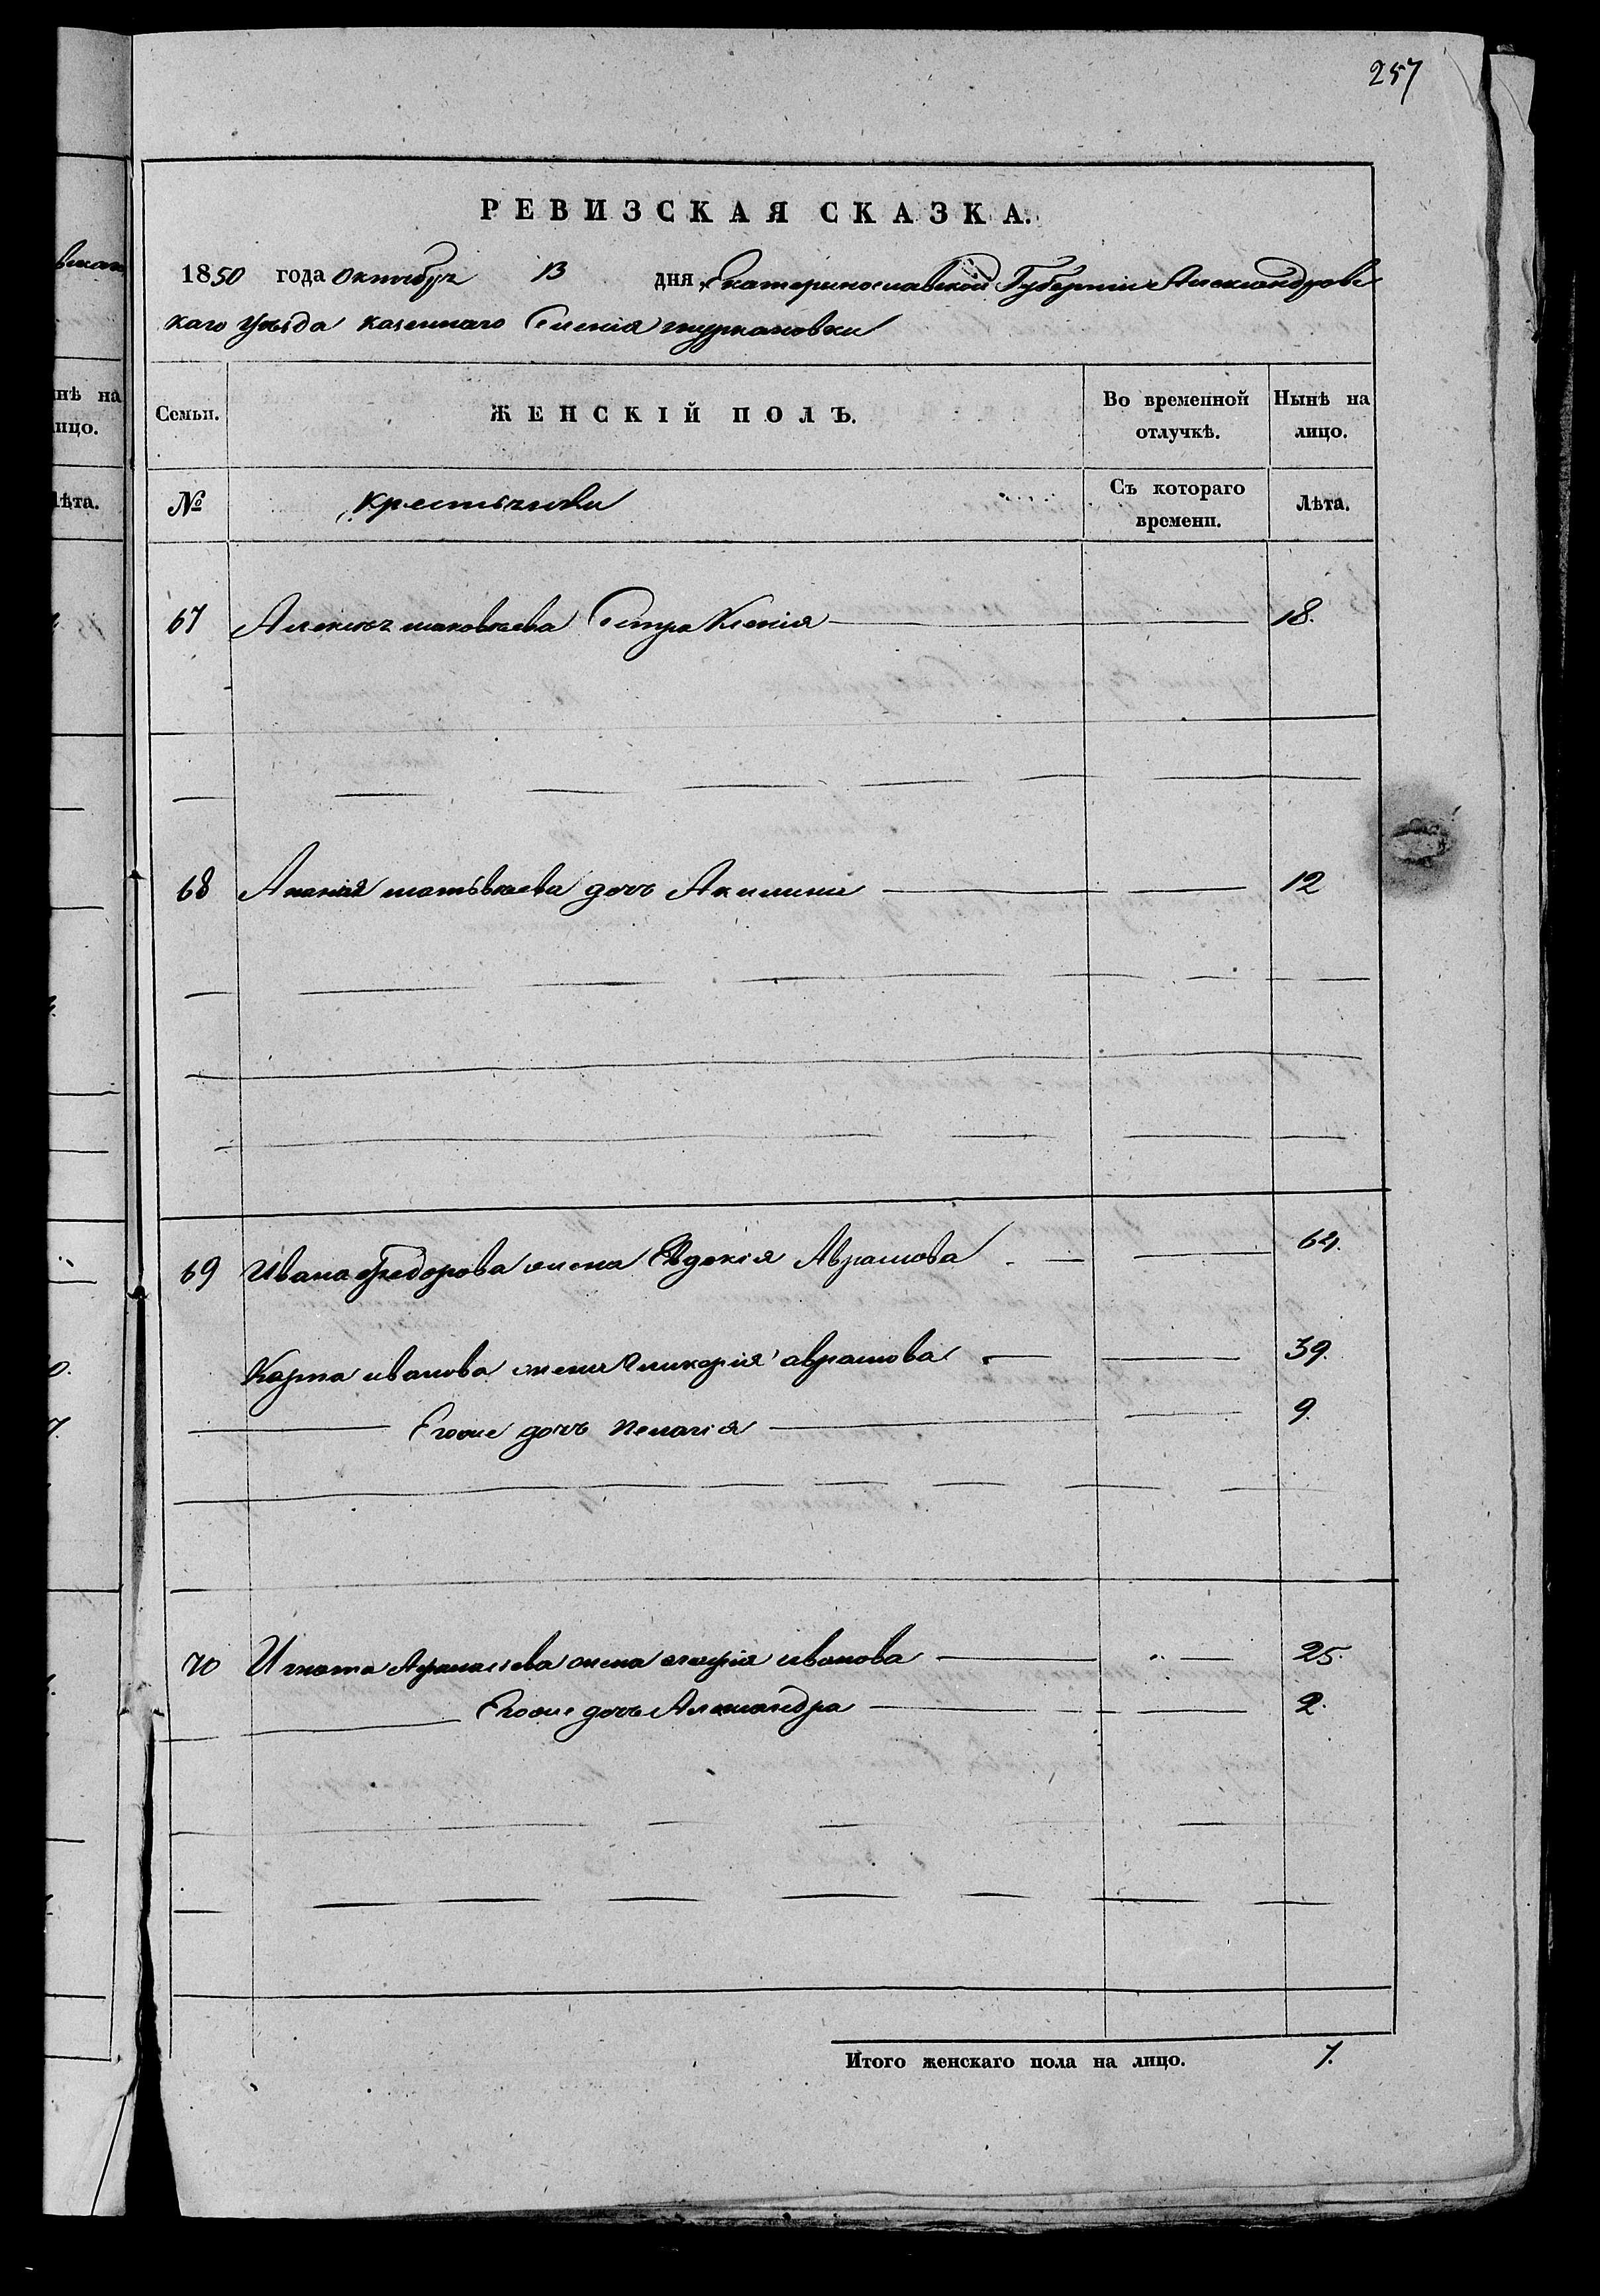 257
РЕВИЗСКАЯ СКАЗКА.
1850 года октября 13 дня Екатеринославской Губерніи Александровс
каго уѣзда казеннаго Селенія
Семьи. ЖЕНСКІЙ ПОЛЪ. Во временной отлучкѣ. Нынѣ на лицо.
№ крестьянки Съ котораго времени. Лѣта.
67 Алексѣя Сестра Ксенія 18.
68 Ананія матвѣева дочь Акилина 12
69 Ивана Федорова жена Евдокія Аврамова 64.
Карпа иванова жена Гликерія аврамова 39.
Егоже дочь пелагія 9.
70 Игната Афанасіева жена марія иванова 25.
Егоже дочь Александра 2.
Итого женскаго пола на лицо. 7.
нѣ на
ицо.
ѣта.